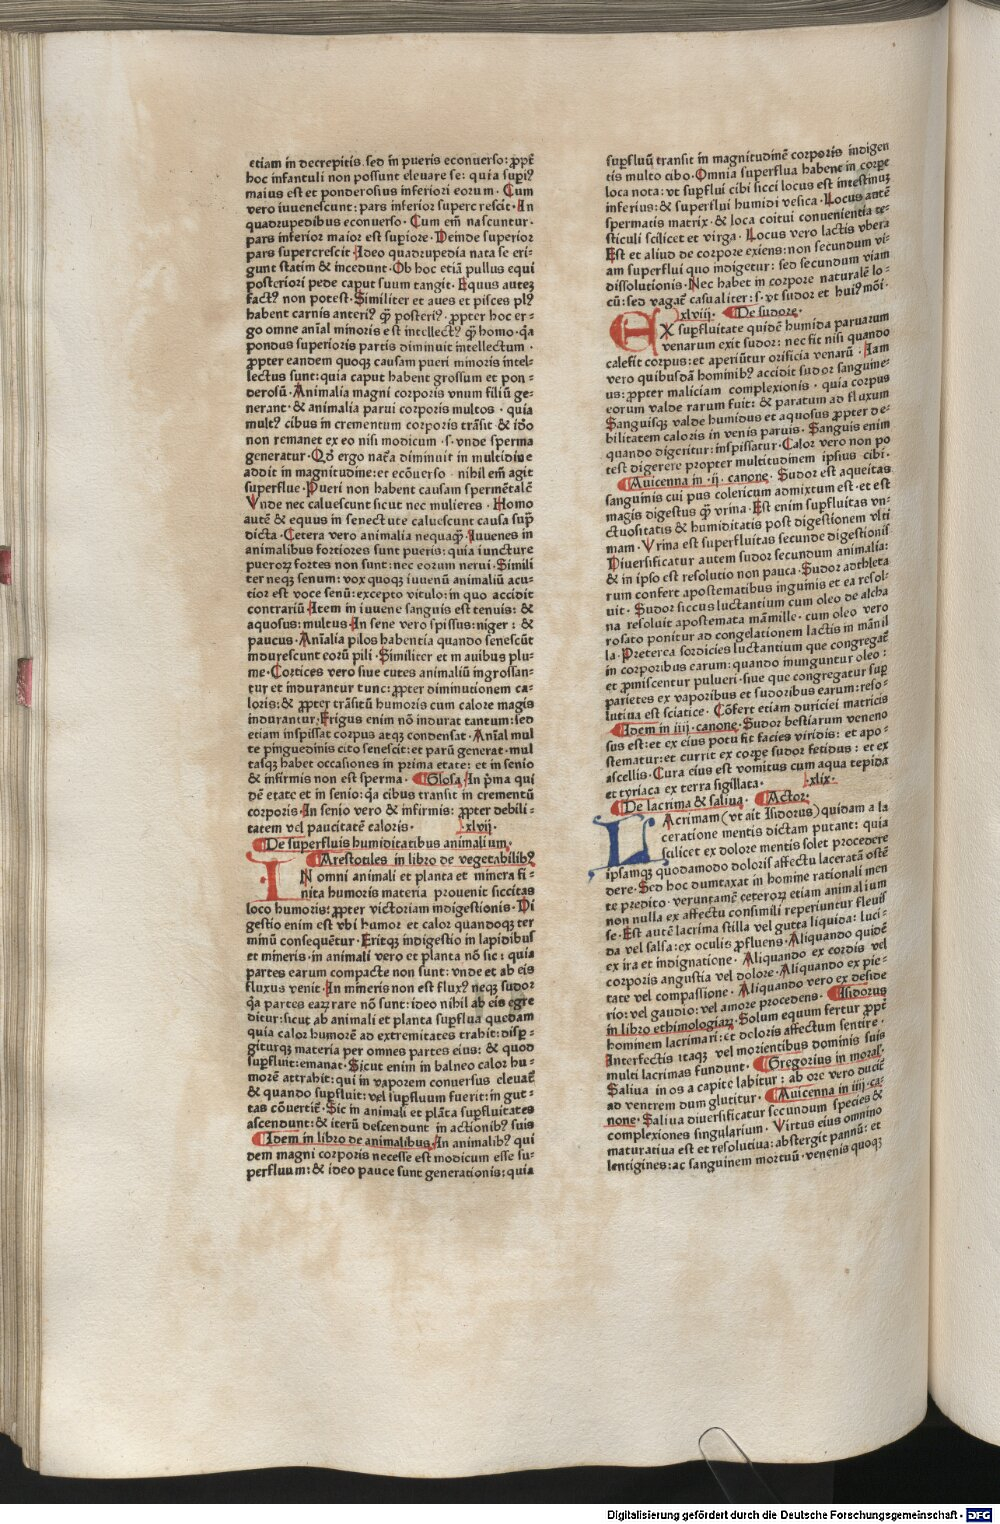 etiam in decrepitis. sed in pueris econuerso: ꝓpt̄
hoc infantuli non possunt eleuare se: quia supi⁹
maius est et ponderosius inferiori eorum · Cum
vero iuuenescunt: pars inferior supercrescit · In
quadrupedibus econuerso · Cum em̄ nascuntur ·
pars inferior maior est supiore · Deinde superior
pars supercrescit · Ideo quadrupedia nata se eri-
gunt statim & incedunt · Ob hoc etiā pullus equi
posteriori pede caput suum tangit · Equus autez
fact⁹ non potest · Similiter et aues et pisces pl⁹
habent carnis anteri⁹ q̄ posteri⁹ · ꝓpter hoc er-
go omne anīal minoris est intellect⁹ q̄ homo · q̄a
pondus superioris partis diminuit intellectum ·
ꝓpter eandem quoqꝫ causam pueri minoris intel-
lectus sunt: quia caput habent grossum et pon-
derosū · Animalia magni corporis vnum filiū ge-
nerant · & animalia parui corporis multos · quia
mult⁹ cibus in crementum corporis trāsit & iđo
non remanet ex eo nisi modicum · s · vnde sperma
generatur · Qđ ergo nat̄a diminuit in multidine
addit in magnitudine: et ecōuerso · nihil em̄ agit
superflue · Pueri non habent causam spermētalē
Vnde nec caluescunt sicut nec mulieres · Homo
autē & equus in senectute caluescunt causa sup̄
dicta · Cetera vero animalia nequaq̄ · Iuuenes in
animalibus fortiores sunt pueris: quia iuncture
pueroꝝ fortes non sunt: nec eorum nerui · Simili
ter neqꝫ senum: vox quoqꝫ iuuenū animaliū acu-
tior est voce senū: excepto vitulo: in quo accidit
contrariū · Item in iuuene sanguis est tenuis: &
aquosus: multus · In sene vero spissus: niger: &
paucus · Anīalia pilos habentia quando senescūt
indurescunt eorū pili · Similiter et in auibus plu-
me · Cortices vero siue cutes animaliū ingrossan-
tur et indurantur tunc: ꝓpter diminutionem ca-
loris: & ꝓpter trāsitū humoris cum calore magis
indurantur · Frigus enim nō indurat tantum: sed
etiam inspissat corpus atqꝫ condensat · Anīal mul
te pinguedinis cito senescit: et parū generat · mul
tasqꝫ habet occasiones in prima etate: et in senio
& infirmis non est sperma · Glosa · In p̄ma qui
dē etate et in senio: q̄a cibus transit in crementū
corporis · In senio vero & infirmis: ꝓpter debili-
tatem vel paucitatē caloris · xlvij ·
De superfluis humiditatibus animalium ·
Arestotiles in libro de vegetabilib⁹
IN omni animali et planta et minera fi-
nita humoris materia prouenit siccitas
loco humoris: ꝓpter victoriam indigestionis · Di
gestio enim est vbi humor et calor quandoqꝫ ter
minū consequētur · Eritqꝫ indigestio in lapidibus
et mineris · in animali vero et planta nō sic: quia
partes earum compacte non sunt: vnde et ab eis
fluxus venit · In mineris non est flux⁹ neqꝫ sudor
q̄a partes eaꝝ rare nō sunt: ideo nihil ab eis egre
ditur: sicut ab animali et planta supflua quedam
quia calor humorē ad extremitates trahit: disp̄-
giturqꝫ materia per omnes partes eius: & quod
supfluit: emanat · Sicut enim in balneo calor hu-
morē attrahit: qui in vaporem conuersus eleuat̄
& quando supfluit: vel supfluum fuerit: in gut-
tas cōuertit̄ · Sic in animali et plāta supfluitates
ascendunt: & iterū descendunt in actionib⁹ suis
Idem in libro de animalibus · In animalib⁹ qui
dem magni corporis necesse est modicum esse su-
perfluum: & ideo pauce sunt generationis: quia
supfluū transit in magnitudinē corporis indigen
tis multo cibo · Omnia superflua habent in corpe
loca nota: vt supflui cibi sicci locus est intestinuꝫ
inferius: & superflui humidi vesica · Locus autē
spermatis matrix · & loca coitui conuenientia te-
sticuli scilicet et virga · Locus vero lactis vbera
Est et aliud de corpore exiens: non secundum vi-
am superflui quo indigetur: sed secundum viam
dissolutionis · Nec habet in corpore naturalē lo-
cū: sed vagat̄ casualiter: s · vt sudor et hui⁹mōi ·
xlviij · De sudore ·
EX supfluitate quidē humida paruarum
venarum exit sudor: nec fit nisi quando
calefit corpus: et aperiūtur orificia venarū · Iam
vero quibusdā hominib⁹ accidit sudor sanguine-
us: ꝓpter maliciam complexionis · quia corpus
eorum valde rarum fuit: & paratum ad fluxum
Sanguisqꝫ valde humidus et aquosus ꝓpter de-
bilitatem caloris in venis paruis · Sanguis enim
quando digeritur: inspissatur · Calor vero non po
test digerere propter multitudinem ipsius cibi ·
Auicenna in · ij · canone · Sudor est aqueitas
sanguinis cui pus colericum admixtum est · et est
magis digestus q̄ vrina · Est enim supfluitas vn-
ctuositatis & humiditatis post digestionem vlti
mam · Vrina est superfluitas secunde digestionis
Diuersificatur autem sudor secundum animalia:
& in ipso est resolutio non pauca · Sudor adthleta
rum confert apostematibus inguinis et ea resol-
uit · Sudor siccus luctantium cum oleo de alcha
na resoluit apostemata māmille · cum oleo vero
rosato ponitur ad congelationem lactis in māmil
la · Preterea sordicies luctantium que congregat̄
in corporibus earum: quando inunguntur oleo:
et ꝓmiscentur pulueri · siue que congregatur sup̄
parietes ex vaporibus et sudoribus earum: reso-
lutiua est sciatice · Cōfert etiam duriciei matricis
Idem in iiij · canone · Sudor bestiarum veneno
sus est: et ex eius potu fit facies viridis: et apo-
stematur: et currit ex corpe sudor fetidus: et ex
ascellis · Cura eius est vomitus cum aqua tepida
et tyriaca ex terra sigillata · xlix ·
De lacrima & saliua · Actor ·
LAcrimam (vt ait Isidorus) quidam a la
ceratione mentis dictam putant: quia
scilicet ex dolore mentis solet procedere
ipsamqꝫ quodamodo doloris affectu laceratā ostē
dere · Sed hoc dumtaxat in homine rationali men
te predito · veruntamē ceteroꝝ etiam animalium
non nulla ex affectu consimili reperiuntur fleuis
se · Est autē lacrima stilla vel gutta liquida: luci-
da vel salsa: ex oculis ꝓfluens · Aliquando quidē
ex ira et indignatione · Aliquando ex cordis vel
corporis angustia vel dolore · Aliquando ex pie-
tate vel compassione · Aliquando vero ex deside
rio: vel gaudio: vel amore procedens · Isidorus
in libro ethimologiaꝝ · Solum equum fertur ꝓpt̄
hominem lacrimari: et doloris affectum sentire ·
Interfectis itaqꝫ vel morientibus dominis suis
multi lacrimas fundunt · Gregorius in moral̄ ·
Saliua in os a capite labitur: ab ore vero ducit̄
ad ventrem dum glutitur · Auicenna in iiij · ca-
none · Saliua diuersificatur secundum species &
complexiones singularium · Virtus eius omnino
maturatiua est et resolutiua: abstergit pannū: et
lentigines: ac sanguinem mortuū · venenis quoqꝫ
Digitalisierung gefördert durch die Deutsche Forschungsgemeinschaft - DFG